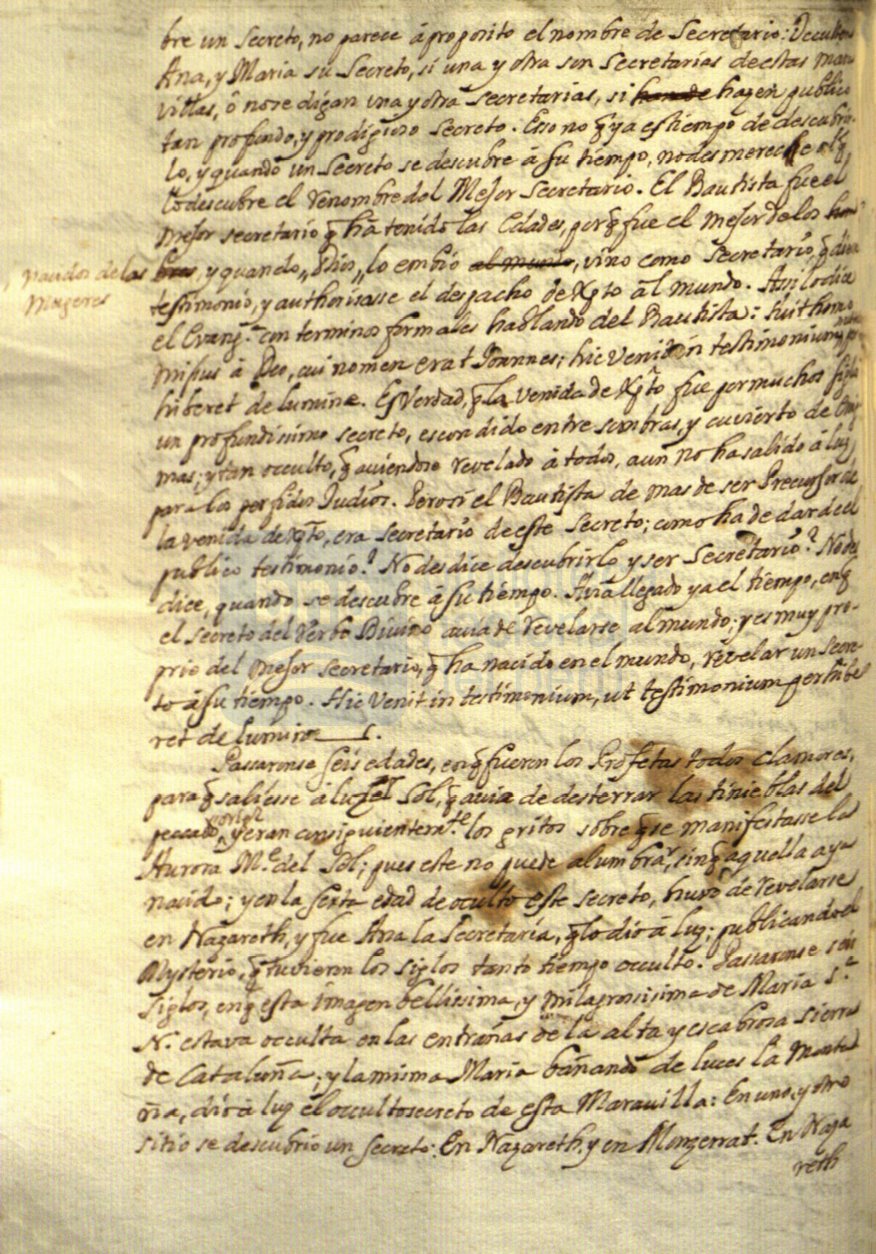 bre un Secreto, no parece â proposito el nombre de Secretario: Occulten
Ana, y Maria su Secreto, si una y otra son Secretarias de estas mara
villas, ô no se digan una y otra secretarias, si hazen publico
tan profundo, y prodigioso Secreto. Esso no q̃ ya es tiempo de descubrir-
lo, y quando un Secreto se descubre â su tiempo, no desmerece el q̃
lo descubre el renombre del Mejor Secretario. El Bautista fue el
mejor secretario q̃ hã tenido las Edades, porq̃ fue el mejor de los
nacidos de las
Mugeres
, y quando Dios lo embiô al mundo, vino como Secretario, q̃ diera
testimonio, y authorisasse el despacho de Xp̃to âl mundo. Assi lo dia
el Evang.ta con terminos formales hablando del Bautista: fuit homo
missus â Deo, cui nomen erat Joannes; hic venit in testimonium
hiberet de lumine. Es verdad, q̃ la venida de Xp̃to fue por muchos siglos
un profundissimo secreto, escondido entre sombras, y cuvierto de Enig
mas; y tan occulto, q̃ aviendose revelado â todos, aun no ha salido â luz
para los perfidos Judios. Pero si el Bautista de mas de ser Precursor de
la venida de Xp̃to, era secretario de este Secreto; como ha de dar de el
publico testimonio? No desdice descubrirlo y ser Secretario? No des
dice, quando se descubre â su tiempo. Avia llegado ya el tiempo, en q̃
el secreto del Verbo Divino avia de revelarse al mundo; y es muy pro-
prio del mejor secretario, q̃ ha nacido en el mundo, revelar un secre-
to â su tiempo. Hic venit in testimonium, ut testimonium perhibe
ret de lumine.
Passaronse seis edades, en q̃ fueron los Profetas todos clamores,
para q̃ saliesse â luz el Sol, q̃ avia de desterrar las tinieblas del
peccado orig.l, y eran consiguientem.te los gritos sobre q̃ se manifestasse la
Aurora M.e del Sol; pues este no puede alumbrar, sin q̃ aquella aya
nacido; y en la sexta edad de oculto este secreto, huvo de revelarse
en Nazareth, y fue Ana la Secretaria, q̃ lo diô â luz; publicando el
Mysterio, q̃ tuvieron los siglos tanto tiempo occulto. Passaronse seis
siglos, en q̃ esta imagen bellissima, y milagrosissima de Maria S.a
N.a estava occulta en las entrañas de la alta y escabrosa sierra
de Cataluña; y la misma Maria bañando de luces la Monta
ña, diô â luz el occulto secreto de esta Maravilla: En uno, y otro
sitio se descubrio un Secreto: En Nazareth, y en Monzerrat. En Naza
reth